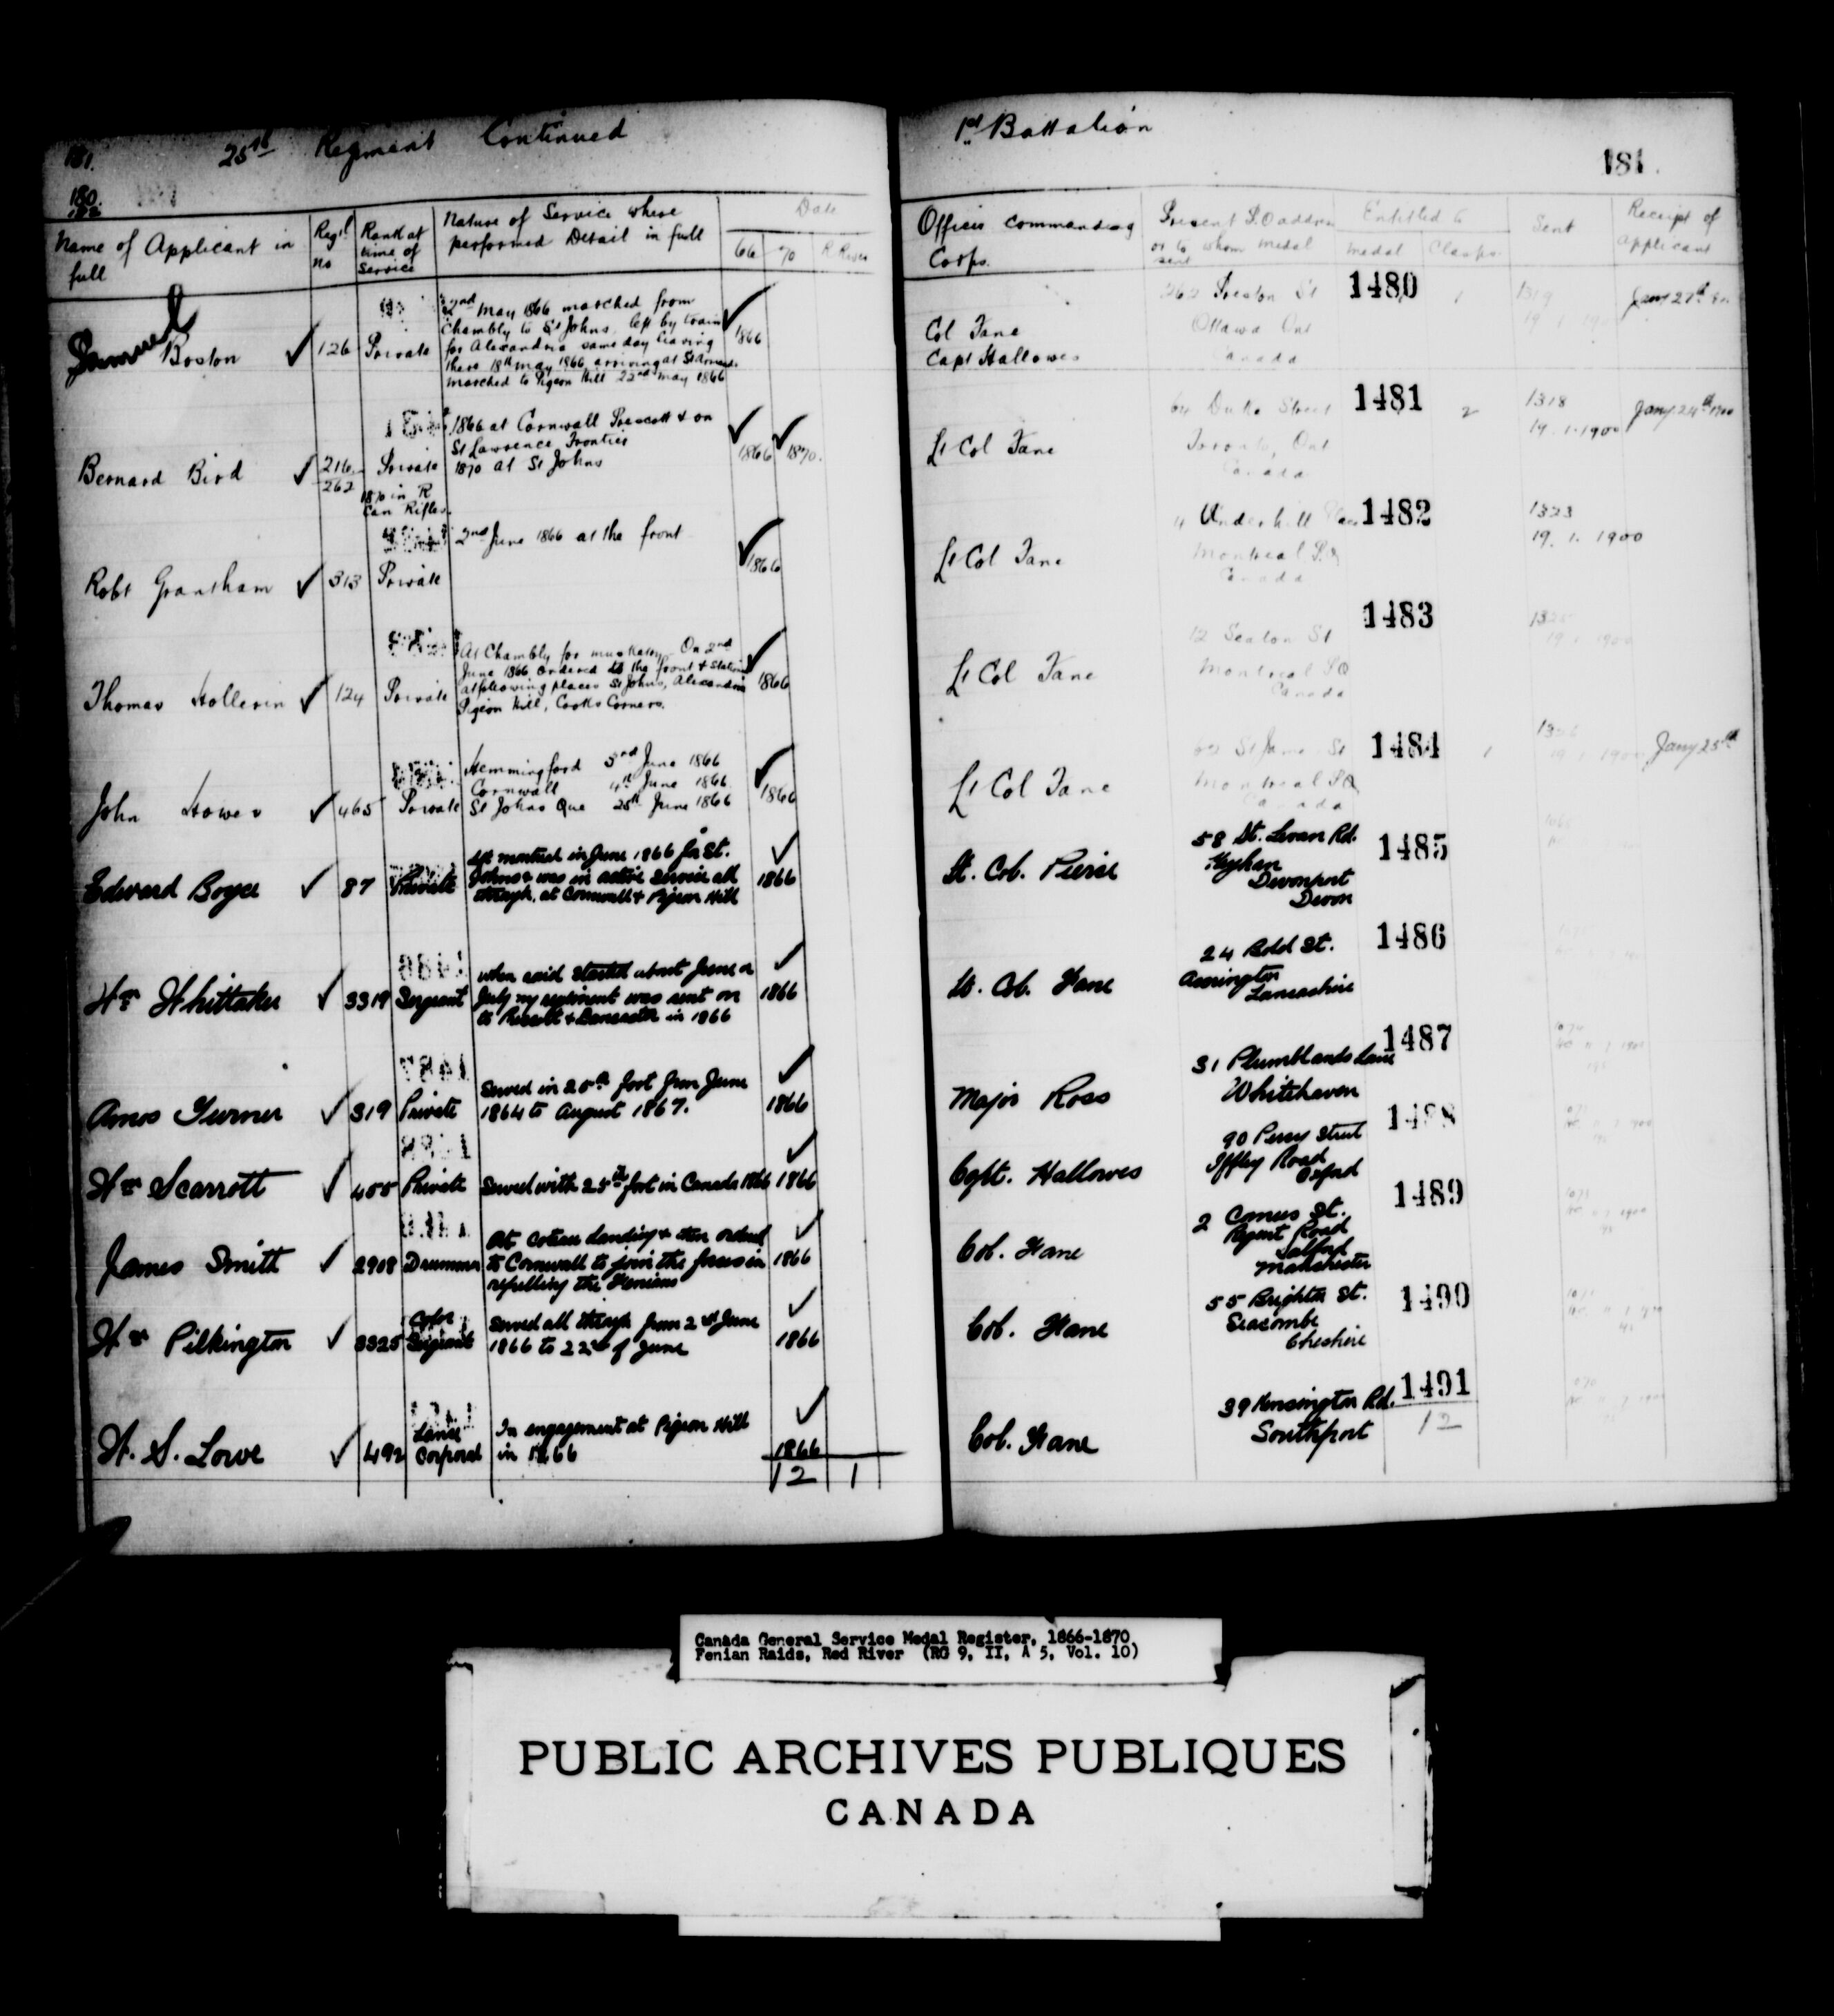 181.
25th Regiment Continued
180.
Name of Applicant in full
Regtl no
Rank at time of Service
Nature of Service where performed Detail in full
Date
66
70
R River
Samuel Boston
126
Private
2nd May 1866 marched from
Chambly to St Johns, left by train
for Alexandria same day leaving
there 18th May 1866 arriving at St Armand
marched to Pigeon Hill 22nd May 1866
1866
Bernard Bird
216
262
Private
1870 in R
Can Rifles.
1866 at Cornwall Prescott & on
St Lawrence Frontier
1870 at St Johns
1866
1870.
Robt Grantham
313
Private
2nd June 1866 at the front
1866
Thomas Hollerin
124
Private
At Chambly for musketry. On 2nd
June 1866 ordered to the front & station
at following places St Johns, Alexandria
Pigeon Hill, Cooks Corners.
1866
John Howes
465
Private
Hemmingford 3rd June 1866
Cornwall 4th June 1866.
St Johns Que 25th June 1866
1866
Edward Boyce
87
Private
Left montreal in June 1866 for St.
Johns & was in active service all
through, at Cornwall & Pigeon Hill
1866
Wm Whittaker
3319
Sergeant
when raid started about June or
July my regiment was sent on
to Prescott & Lancaster in 1866
1866
Amos Turner
319
Private
Served in 25th foot from June
1864 to August 1867.
1866
Wm Scarrott
400
Private
Served with 25th foot in Canada 1866
1866
James Smith
2908
Drummer
At Coteau Landing & then ordered
to Cornwall to join the forces in
repelling the Fenians
1866
Wm Pilkington
3325
Color Sergeant
Served all through from 2nd June
1866 to 22nd of June
1866
W. S. Lowe
492
Lance Corporal
In engagement at Pigeon Hill
in 1866
1866
12
1
1st Battalion
181.
Officer Commanding Corps.
Present P.O address or to whom medal sent
Entitled to
Medal
Clasps
Sent
Receipt of Applicant
Col Fane
Capt Hallowes
262 Preston St
Ottawa Ont
Canada
1480
1
1319
Jany 27th
Lt Col Fane
64 Duke Street
Toronto, Ont
Canada
1481
2
1318
19.1.1900
Jany. 24th 1900
Lt Col Fane
4 Underhill Place
Montreal P.Q
Canada
1482
1323
19. 1. 1900
Lt Col Fane
12 Seaton St
Montreal P Q
Canada
1483
1325
19 1 1900
Lt Col Fane
St James St
Montreal P Q
Canada
1484
1
19 1 1900
Jany 25th
Lt. Col. Pierse
58 St. Levan Rd.
Keyham
Devonport
Devon
1485
Lt. Col. Fane
24 Bold St.
Accrington
Lancashire
1486
Major Ross
31 Plumblands Lane
Whitehaven
1487
Capt. Hallowes
90 Percy Street
Iffley Road
Oxford
1488
Col. Fane
2 Comus St.
Regent Road
Salford
Manchester
1489
Col. Fane
55 Brighton St.
Seacombe
Cheshire
1490
Col. Fane
39 Kensington Rd.
Southport
1491
12
Canada General Service Medal Register, 1866-1870
Fenian Raids, Red River (RG 9, II, A 5, Vol. 10)
PUBLIC ARCHIVES PUBLIQUES
CANADA